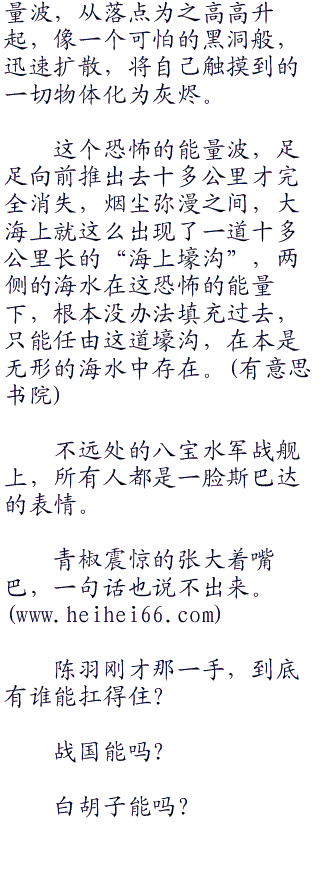 量波，从落点为之高高升
起，像一个可怕的黑洞般，
迅速扩散，将自己触摸到的
一切物体化为灰烬。
这个恐怖的能量波，足
足向前推出去十多公里才完
全消失，烟尘弥漫之间，大
海上就这么出现了一道十多
公里长的“海上壕沟”，两
侧的海水在这恐怖的能量
下，根本没办法填充过去，
只能任由这道壕沟，在本是
无形的海水中存在。(有意思
书院)
不远处的八宝水军战舰
上，所有人都是一脸斯巴达
的表情。
青椒震惊的张大着嘴
巴，一句话也说不出来。
(www.heihei66.com)
陈羽刚才那一手，到底
有谁能扛得住？
战国能吗？
白胡子能吗？